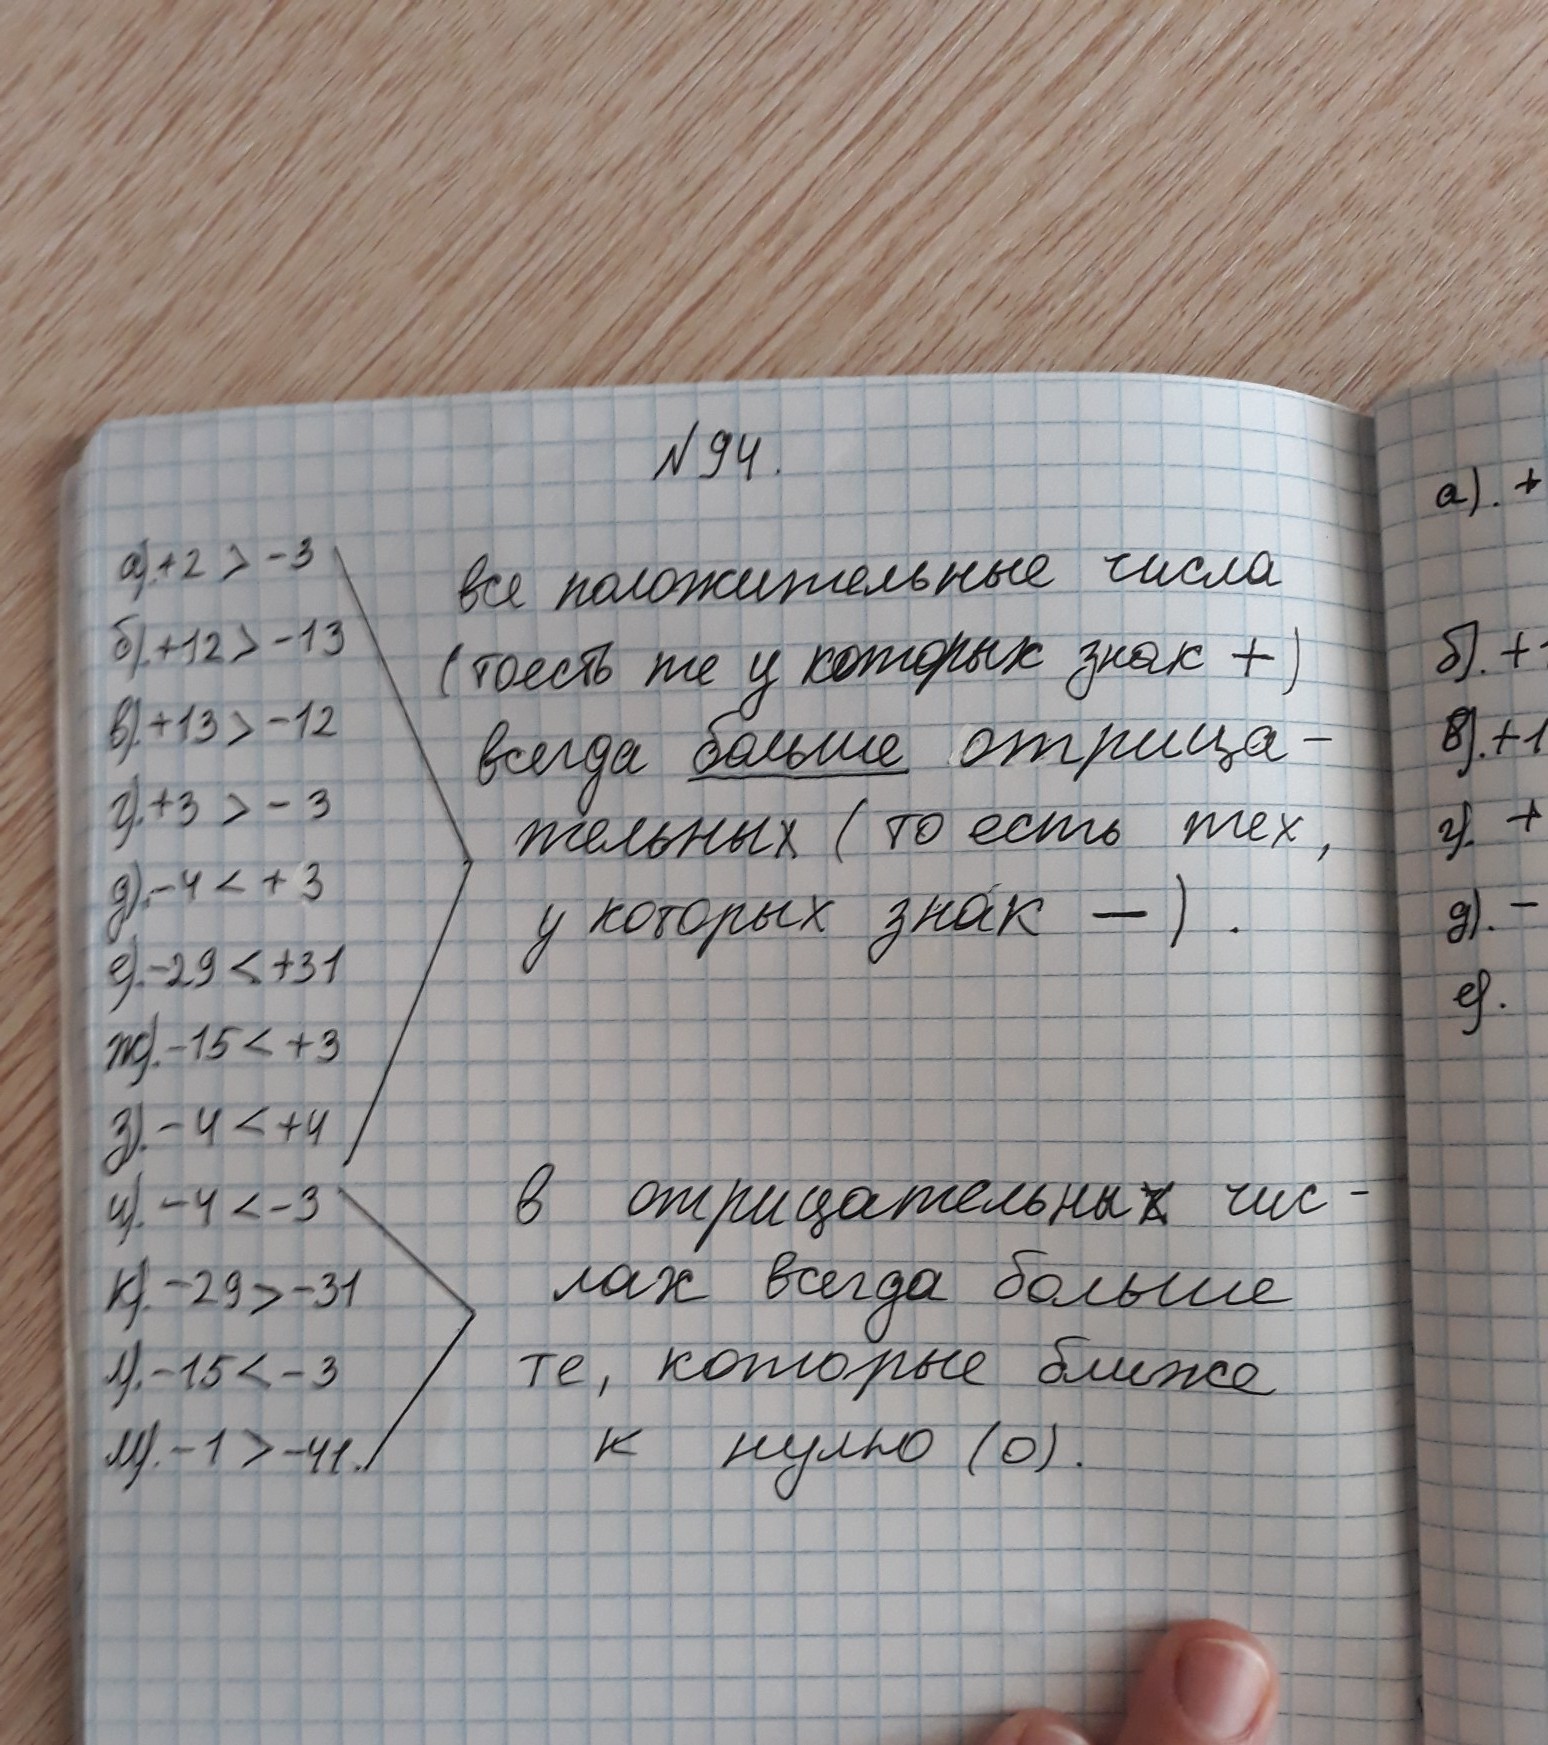 N94.
а).+2 > -3
б).+12 > -13
в).+13 > -12
г).+3 > -3
д).-4 < +3
е).-29 < +31
ж).-15 < +3
з).-4 < +4
и).-4 < -3
к).-29 > -31
л).-15 < -3
м).-1 > -41.
все положительные числа
(тоесть те у которых знак +)
всегда больше отрица-
тельных (то есть тех,
у которых знак —).
в отрицательных чис-
лах всегда больше
те, которые ближе
к нулю (0).
а). +
б). +1
в). +1
г). +
д). -
е).